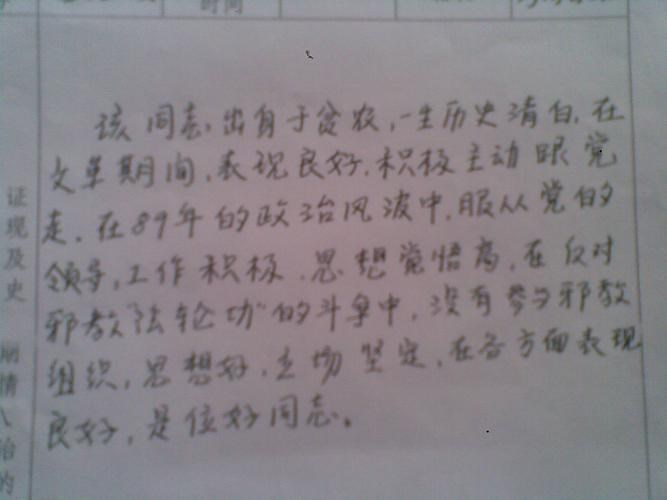 时间
该同志,出身于贫农,一生历史清白,在
文革期间,表现良好,积极主动跟党
走,在89年的政治风波中,服从党的
领导,工作积极,思想觉悟高,在反对
邪教"法轮功"的斗争中,没有参与邪教
组织,思想好,立场坚定,在各方面表现
良好,是位好同志。
证
现
及
史
情
治
的